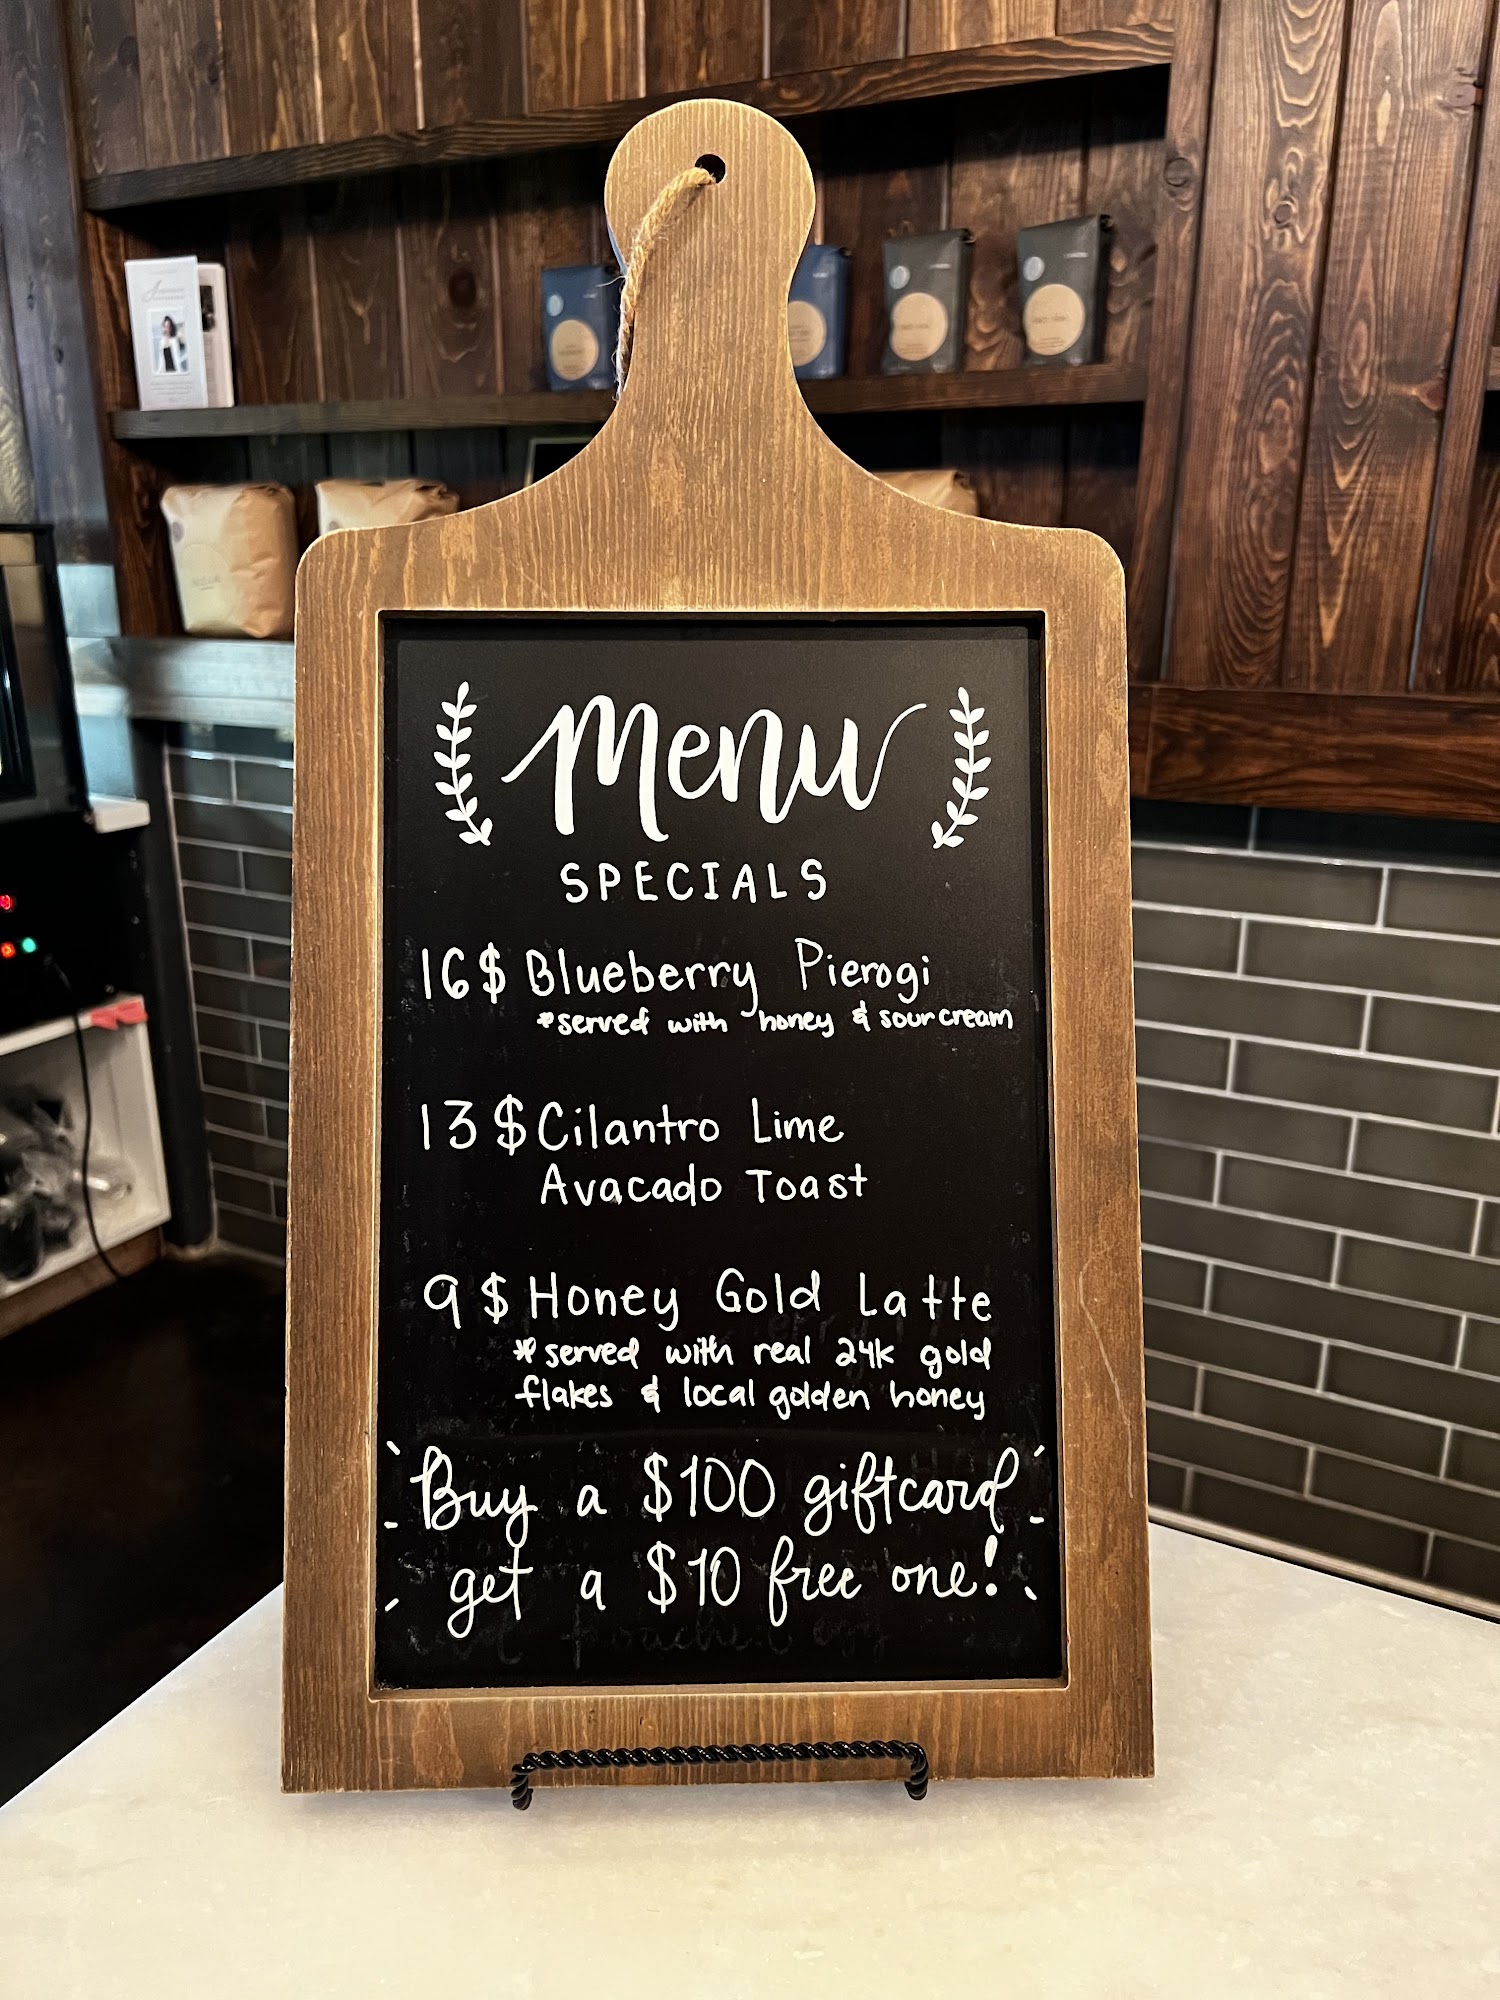 Menu
SPECIALS
16$ Blueberry Pierogi
*served with honey & sour cream
13$ Cilantro Lime
Avacado Toast
9$ Honey Gold Latte
*served with real 24k gold
flakes & local golden honey
Buy a $100 giftcard
get a $10 free one!